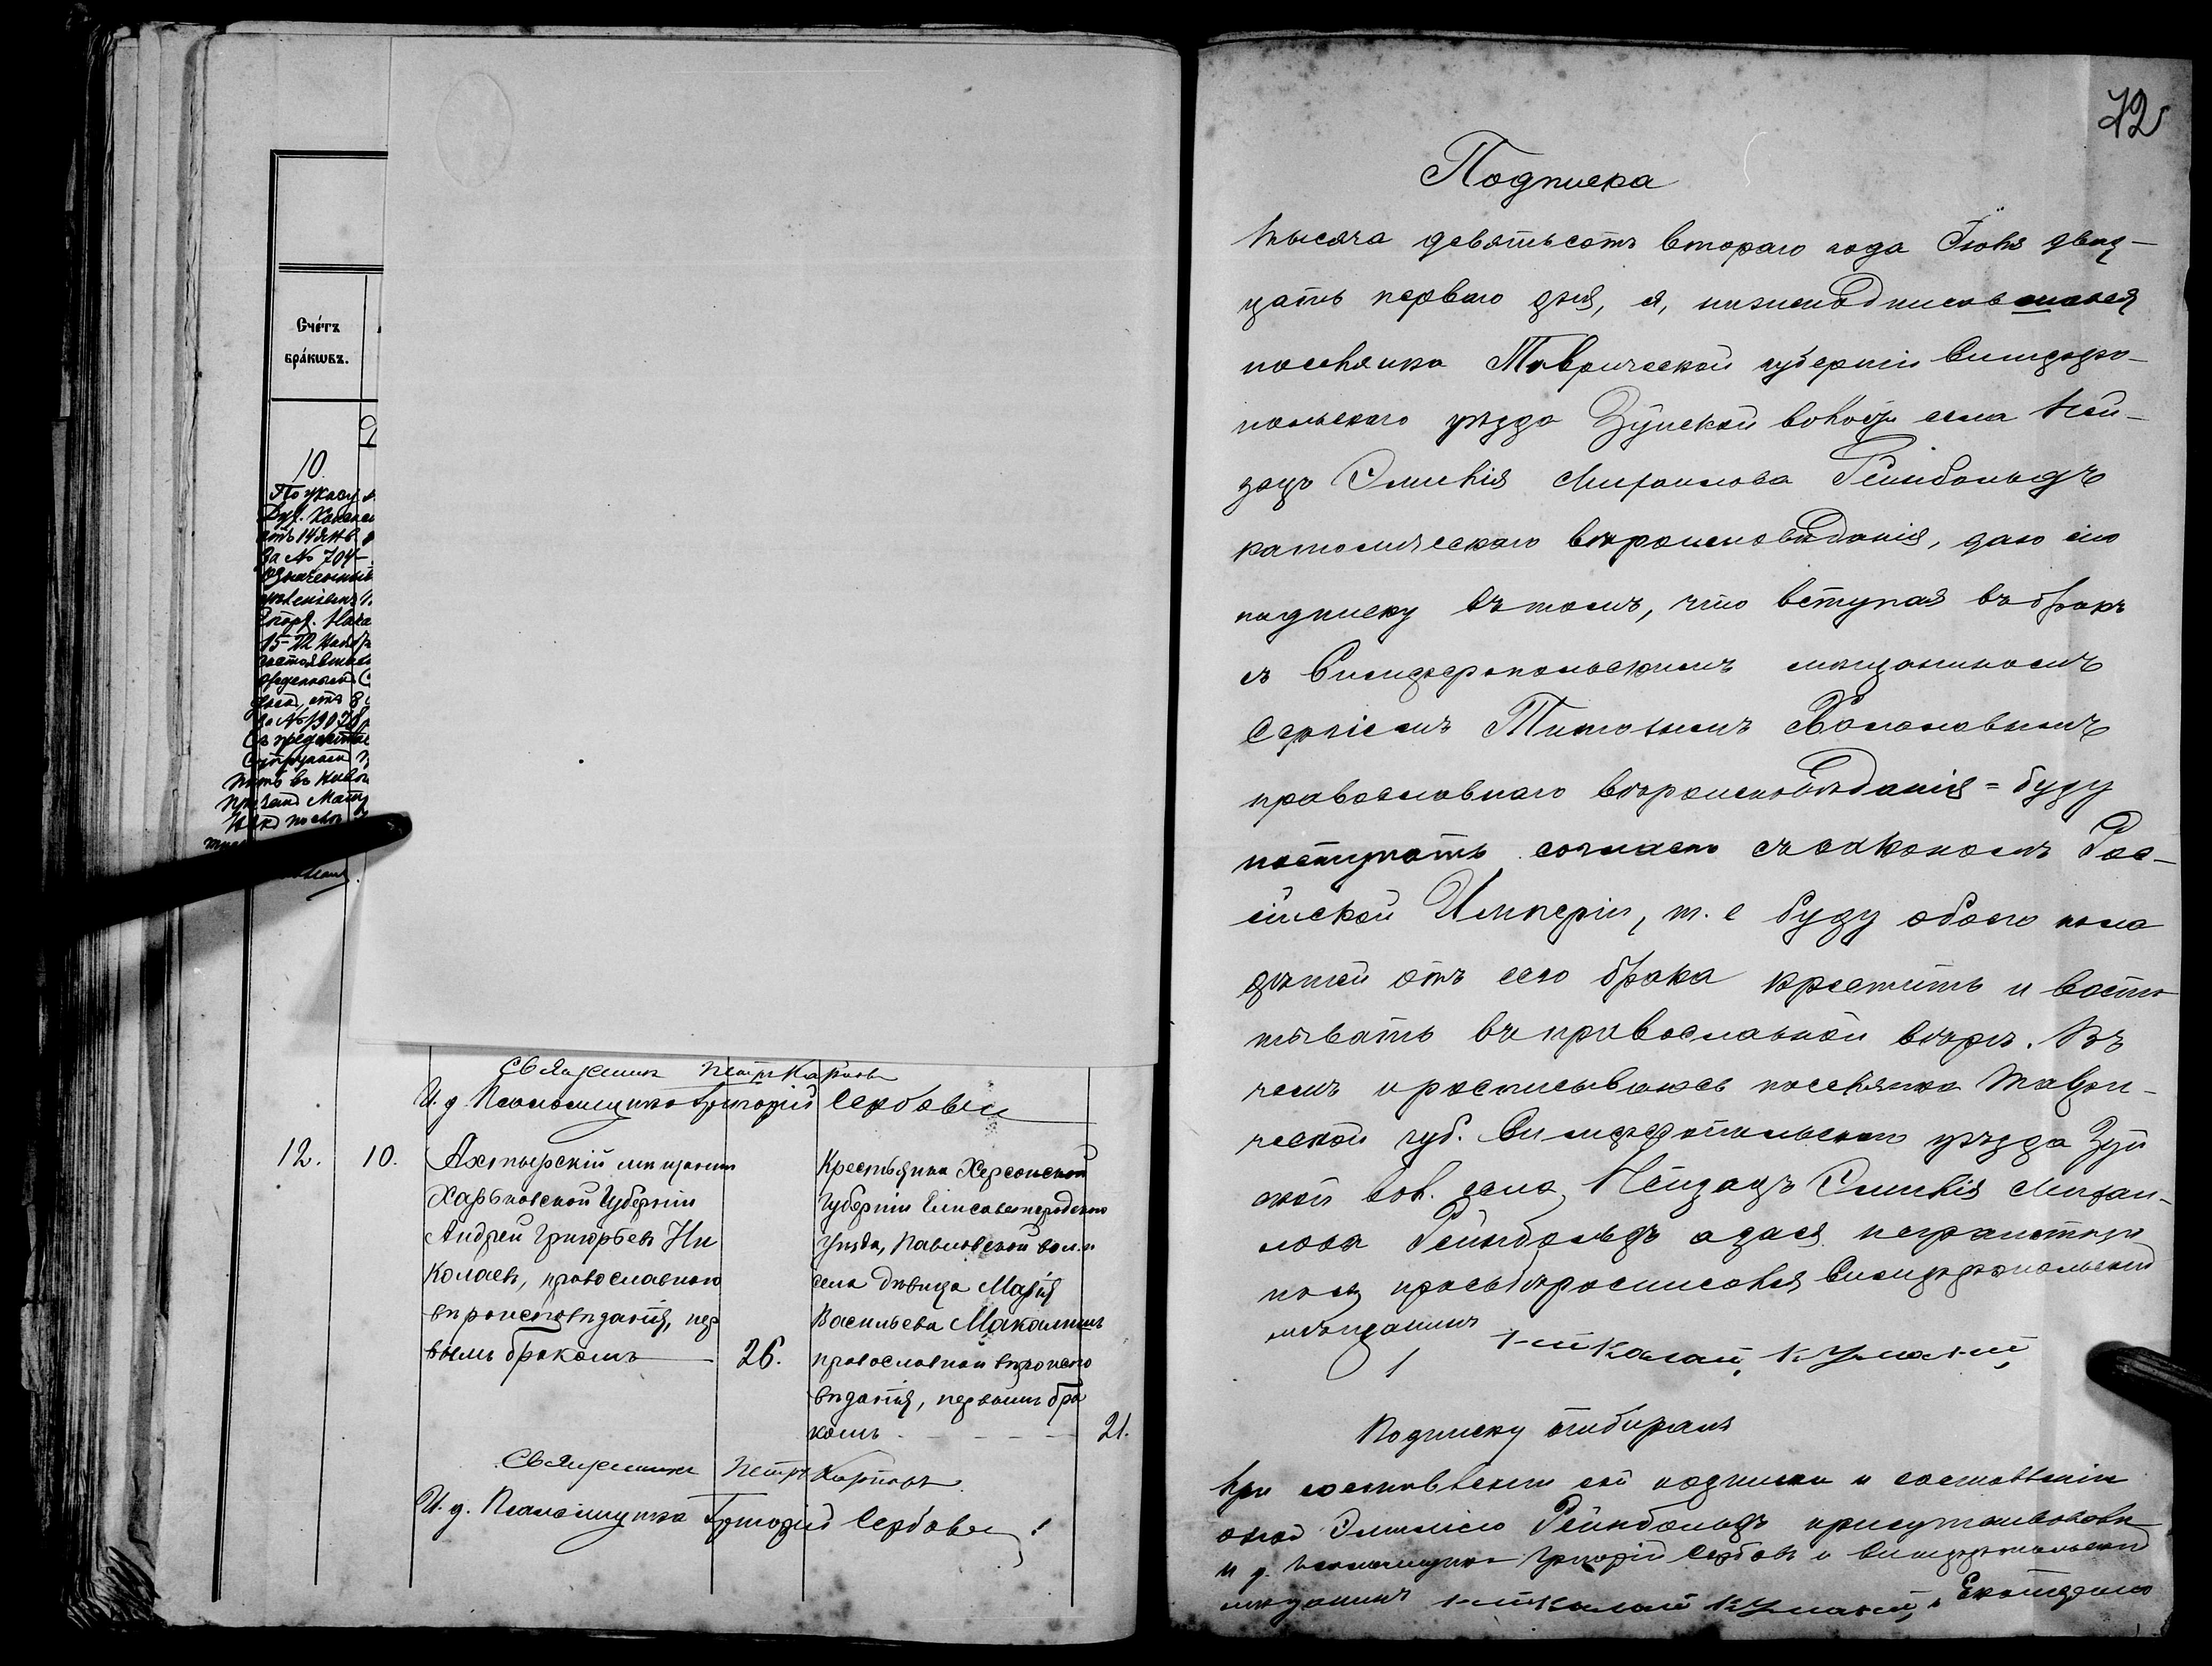 Счётъ
бра́кωвъ.
10.
По указу
Дух.
отъ 14 Янв
За № 704
15-22 Нояб
отъ 8
за № 19078
Священникъ Петръ Карповъ
И. д. Псаломщика Григорій Сербовъ
12. 10.
Ахтырскій мѣщанинъ
Харьковской Губерніи
Андрей Григорьевъ Ни
колаевъ, православнаго
вѣроисповѣданія, пер
вымъ бракомъ 26.
Крестьянка Херсонской
Губерніи Елисаветградскаго
Уѣзда, Павловской вол. и
села дѣвица Марія
Васильева
православной вѣроиспо
вѣданія, первымъ бра
комъ 21.
Священникъ Петръ Карповъ.
И. д. Псаломщика Григорій Сербовъ
72
Подписка
тысяча девятьсотъ втораго года Іюня двад-
цать перваго дня, я, нижеподписавшаяся
поселянка Таврической губерніи Симферо-
польскаго уѣзда Зуйской волости села Ней-
зацъ Эмилія Михаилова Рейнбольдъ
католическаго вѣроисповѣданія, даю сію
подписку въ томъ, что вступая въ бракъ
съ Симферопольскимъ мѣщаниномъ
Сергіемъ Титовымъ
православнаго вѣроисповѣданія = буду
поступать согласно съ закономъ Рос-
сійской Имперіи, т. е буду обоего пола
дѣтей отъ сего брака крестить и воспи
тывать въ православной вѣрѣ. Въ
чемъ и росписываюсь поселянка Таври-
ческой губ. Симферопольскаго уѣзда Зуй
ской вол. села Нейзацъ Эмилія Михаи-
лова Рейнбольдъ а за ея неграмотну
по ея просьбѣ росписался Симферопольскій
мѣщанинъ Николай
Подписку отбиралъ
При составленіи сей подписки и составленіи
оной Эмиліею Рейнбольдъ присутствовали
и д. псаломщика Григорій Сербовъ и Симферопольскій
мѣщанинъ Николай